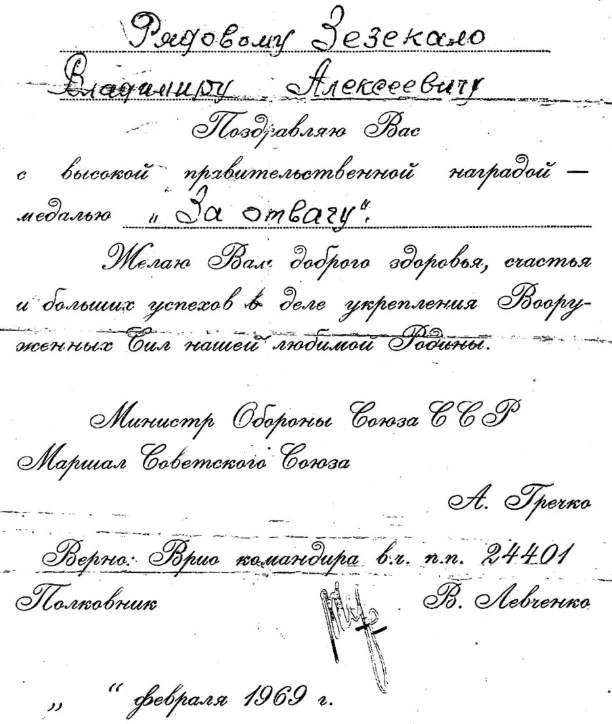 Рядовому Зезекало
Владимиру Алексеевичу
Поздравляю Вас
с высокой правительственной наградой —
медалью „За отвагу“.
Желаю Вам доброго здоровья, счастья
и больших успехов в деле укрепления Воору-
женных Сил нашей любимой Родины.
Министр Обороны Союза ССР
Маршал Советского Союза
А. Гречко
Верно: Врио командира в.ч. п.п. 24401
Полковник В. Левченко
„ “ февраля 1969 г.